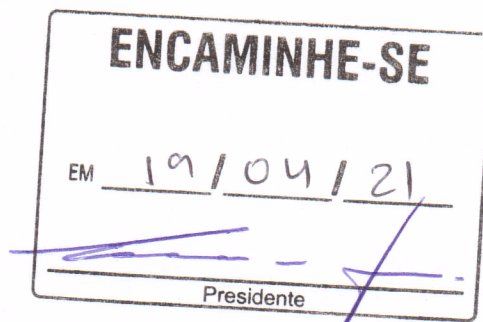 ENCAMINHE-SE
EM 19/04/21
Presidente